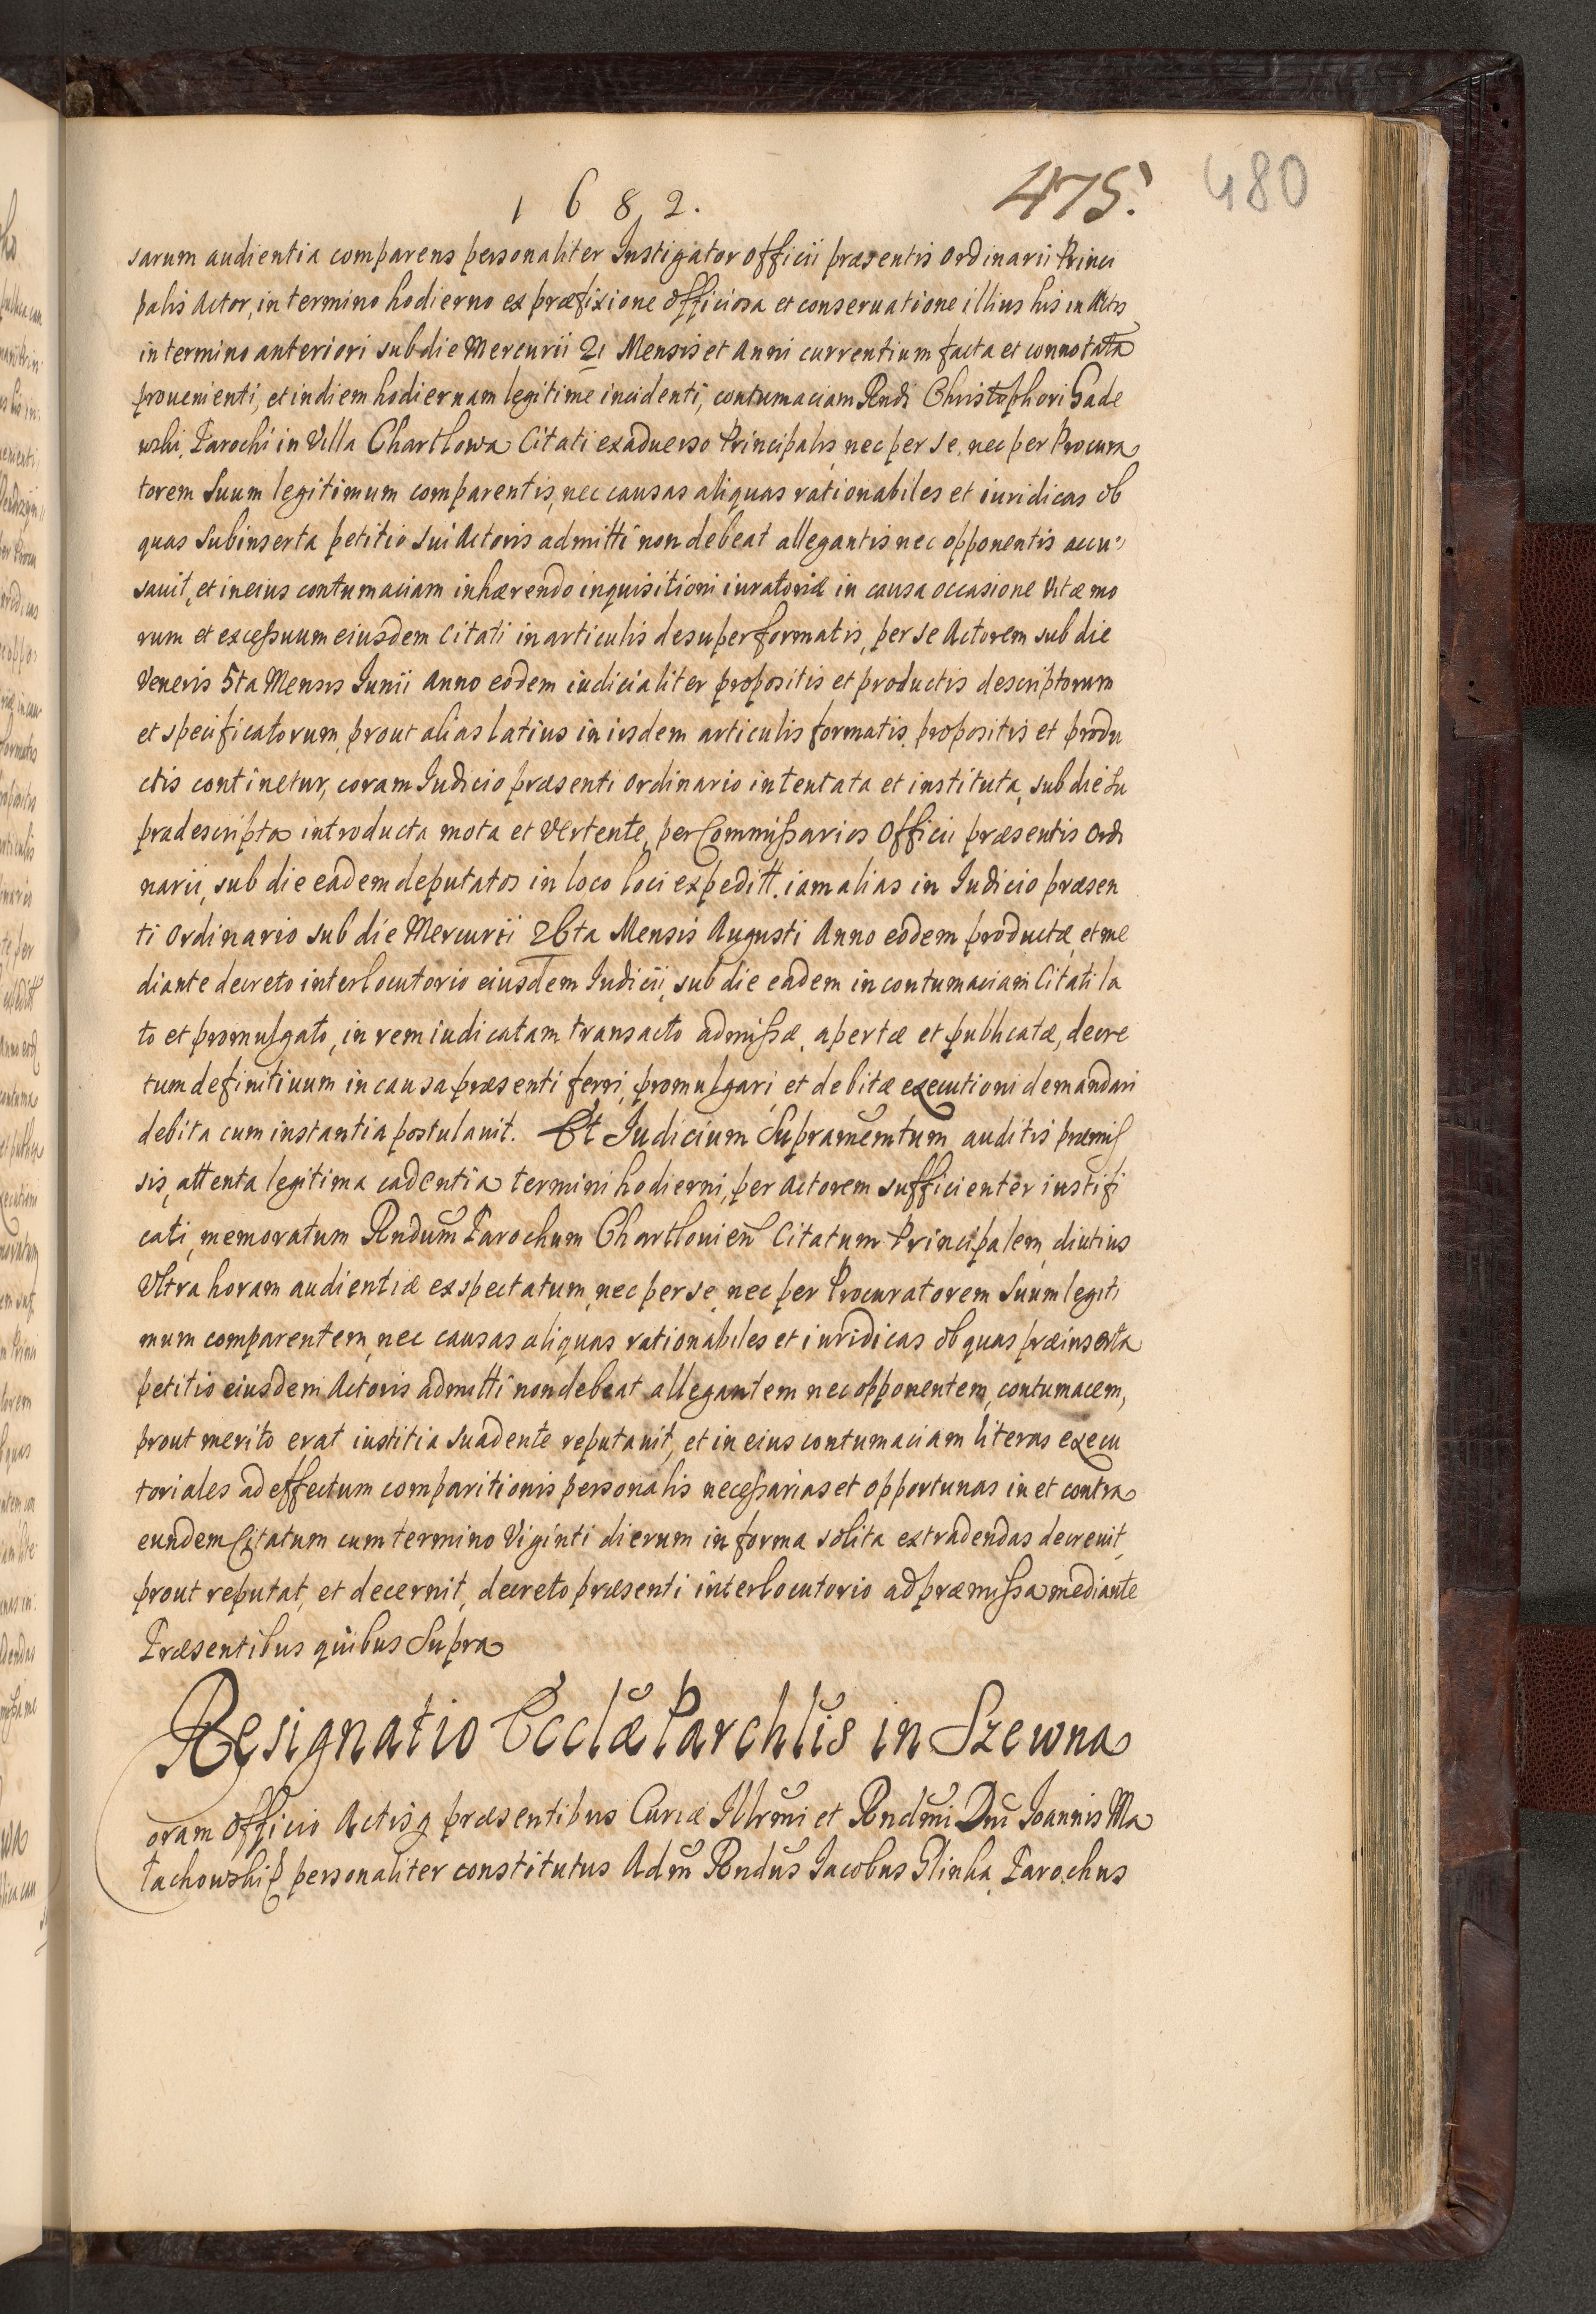 1682.
475.
480
sarum audientia comparens personaliter Instigator officii præsentis ordinarii Princi
palis Actor, in termino hodierno ex præfixione officiosa et conseruatione illius his in Actis
in termino anteriori sub die Mercurii 21 Mensis et Anni currentium facta et connotata
prouenienti, et in diem hodiernam legitime incidenti, contumaciam Rndi Christophori Gade
wski, Parochi in Villa Chartlowa Citati ex aduerso Principalis, nec per se, nec per Procura
torem Suum legitimum comparentis, nec causas aliquas rationabiles et iuridicas ob
quas Subinserta petitio sui Actoris admitti non debeat allegantis nec opponentis accu
sauit, et in eius contumaciam inhærendo inquisitioni iuratoriæ in causa occasione Vitæ mo
rum et excessuum eiusdem Citati in articulis desuper formatis, per se Actorem sub die
Veneris 5ta Mensis Iunii Anno eodem iudicialiter propositis et productis descriptorum
et specificatorum, prout alias latius in iisdem articulis formatis, propositis et produ
ctis continetur, coram Iudicio præsenti ordinario intentata et instituta, sub die Su
pradescripta introducta mota et Vertente, per Commissarios Officii præsentis Ordi
narii, sub die eadem deputatos in loco loci expeditt. iam alias in Iudicio præsen
ti Ordinario sub die Mercurii 26ta Mensis Augusti Anno eodem productæ, et me
diante decreto interlocutorio eiusdem Iudicii, sub die eadem in contumaciam Citati la
to et promulgato, in rem iudicatam transacto admissæ, apertæ et publicatæ, decre
tum definitiuum in causa præsenti ferri, promulgari, et debitæ executioni demandari
debita cum instantia postulauit. Et Iudicium Supramemtum auditis præmis
sis, attenta legitima cadentia termini hodierni, per Actorem sufficienter iustifi
cati, memoratum Rndum Parochum Chartlouien Citatum Principalem, diutius
Vltra horam audientiæ exspectatum, nec per se, nec per Procuratorem Suum legiti
mum comparentem, nec causas aliquas rationabiles et iuridicas ob quas præinserta
petitio eiusdem Actoris admitti non debeat allegantem nec opponentem, contumacem,
prout merito erat iustitia suadente reputauit, et in eius contumaciam literas execu
toriales ad effectum comparitionis personalis necessarias et opportunas in et contra
eundem Citatum cum termino Viginti dierum in forma solita extradendas decreuit,
prout reputat, et decernit, decreto præsenti interlocutorio ad præmissa mediante
Præsentibus quibus Supra
Resignatio Ecclæ Parchlis in Szewna
oram Officio Actisq præsentibus Curiæ Illrmi et Rndmi Dni Ioannis Ma
tachowski personaliter constitutus Adm Rndus Iacobus Glinka, Parochus